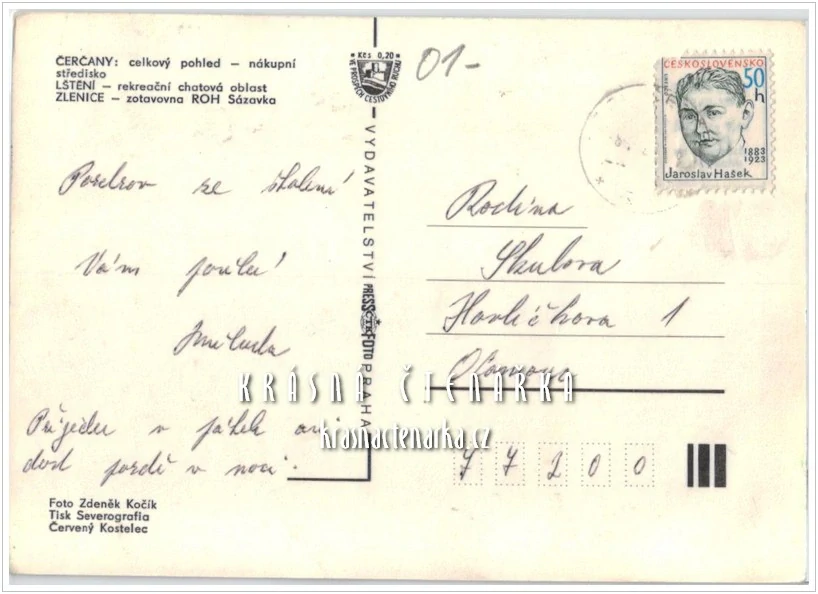 ČERČANY: celkový pohled – nákupní
středisko
LŠTĚNÍ – rekreační chatová oblast
ZLENICE – zotavovna ROH Sázavka
Kčs 0,20
VE PROSPĚCH CESTOVNÍHO RUCHU
01-
ČESKOSLOVENSKO
50 h
1883
1923
Jaroslav Hašek
Pozdrav ze školení
Vám posílá
VYDAVATELSTVÍ PRESSFOTO PRAHA
ČTK
Rodina
Skulova
Havlíčkova 1
Olomouc
KRÁSNÁ ČTENÁŘKA
krasnactenarka.cz
Přijedu v pátek asi
dost pozdě v noci.
77200
Foto Zdeněk Kočík
Tisk Severografia
Červený Kostelec